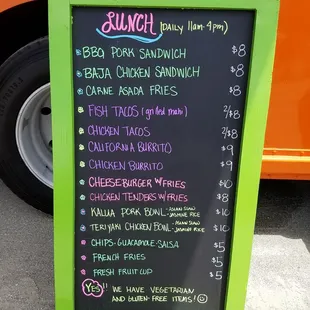 LUNCH (DAILY 11am-4pm)
BBQ PORK SANDWICH $8
BAJA CHICKEN SANDWICH $8
CARNE ASADA FRIES $8
FISH TACOS (grilled mahi) 2/$8
CHICKEN TACOS 2/$8
CALIFORNIA BURRITO $9
CHICKEN BURRITO $9
CHEESEBURGER W/FRIES $10
CHICKEN TENDERS W/FRIES $8
KALUA PORK BOWL -ASIAN SLAW -JASMINE RICE $10
TERIYAKI CHICKEN BOWL -ASIAN SLAW -JASMINE RICE $10
CHIPS-GUACAMOLE-SALSA $5
FRENCH FRIES $5
FRESH FRUIT CUP $5
YES!! WE HAVE VEGETARIAN
AND GLUTEN-FREE ITEMS!